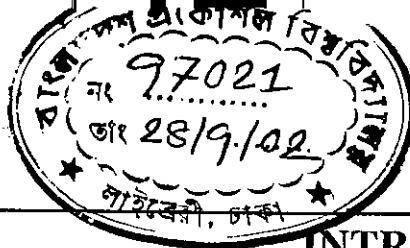 বাংলাদেশ প্রকৌশল বিশ্ববিদ্যালয়
নং 97021
তাং 28/9/02
লাইব্রেরী, ঢাকা
INTR